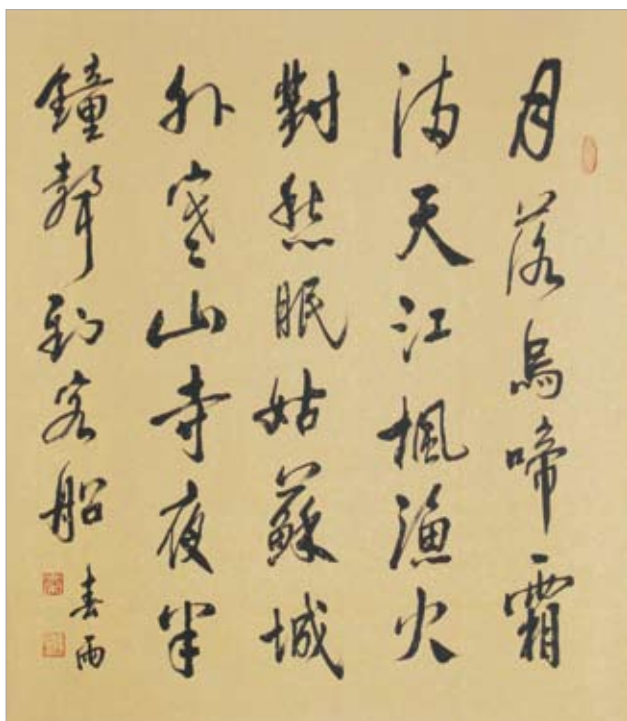 月落烏啼霜
滿天江楓漁火
對愁眠姑蘇城
外寒山寺夜半
鐘聲到客船
春雨